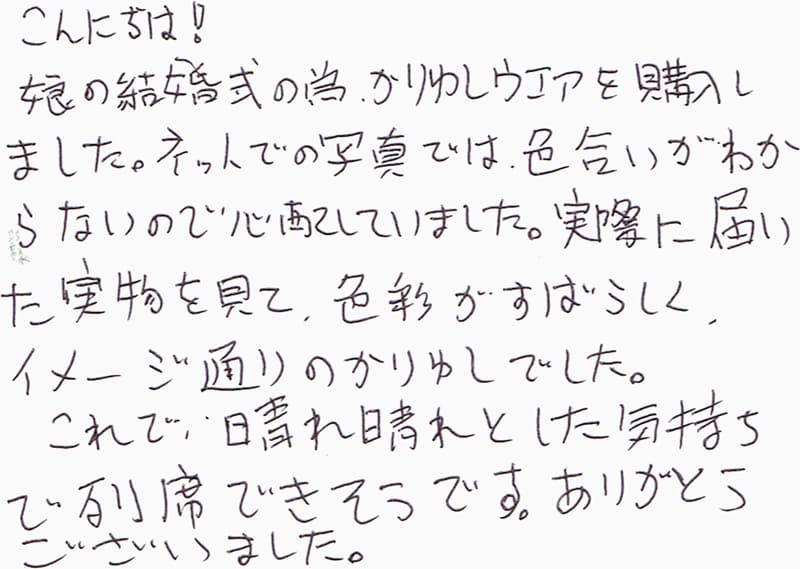 こんにちは!
娘の結婚式の為、かりゆしウエアを購入し
ました。ネットでの写真では、色合いがわか
らないので心配していました。実際に届い
た実物を見て、色彩がすばらしく、
イメージ通りのかりゆしでした。
これで、晴れ晴れとした気持ち
で列席できそうです。ありがとう
ございました。